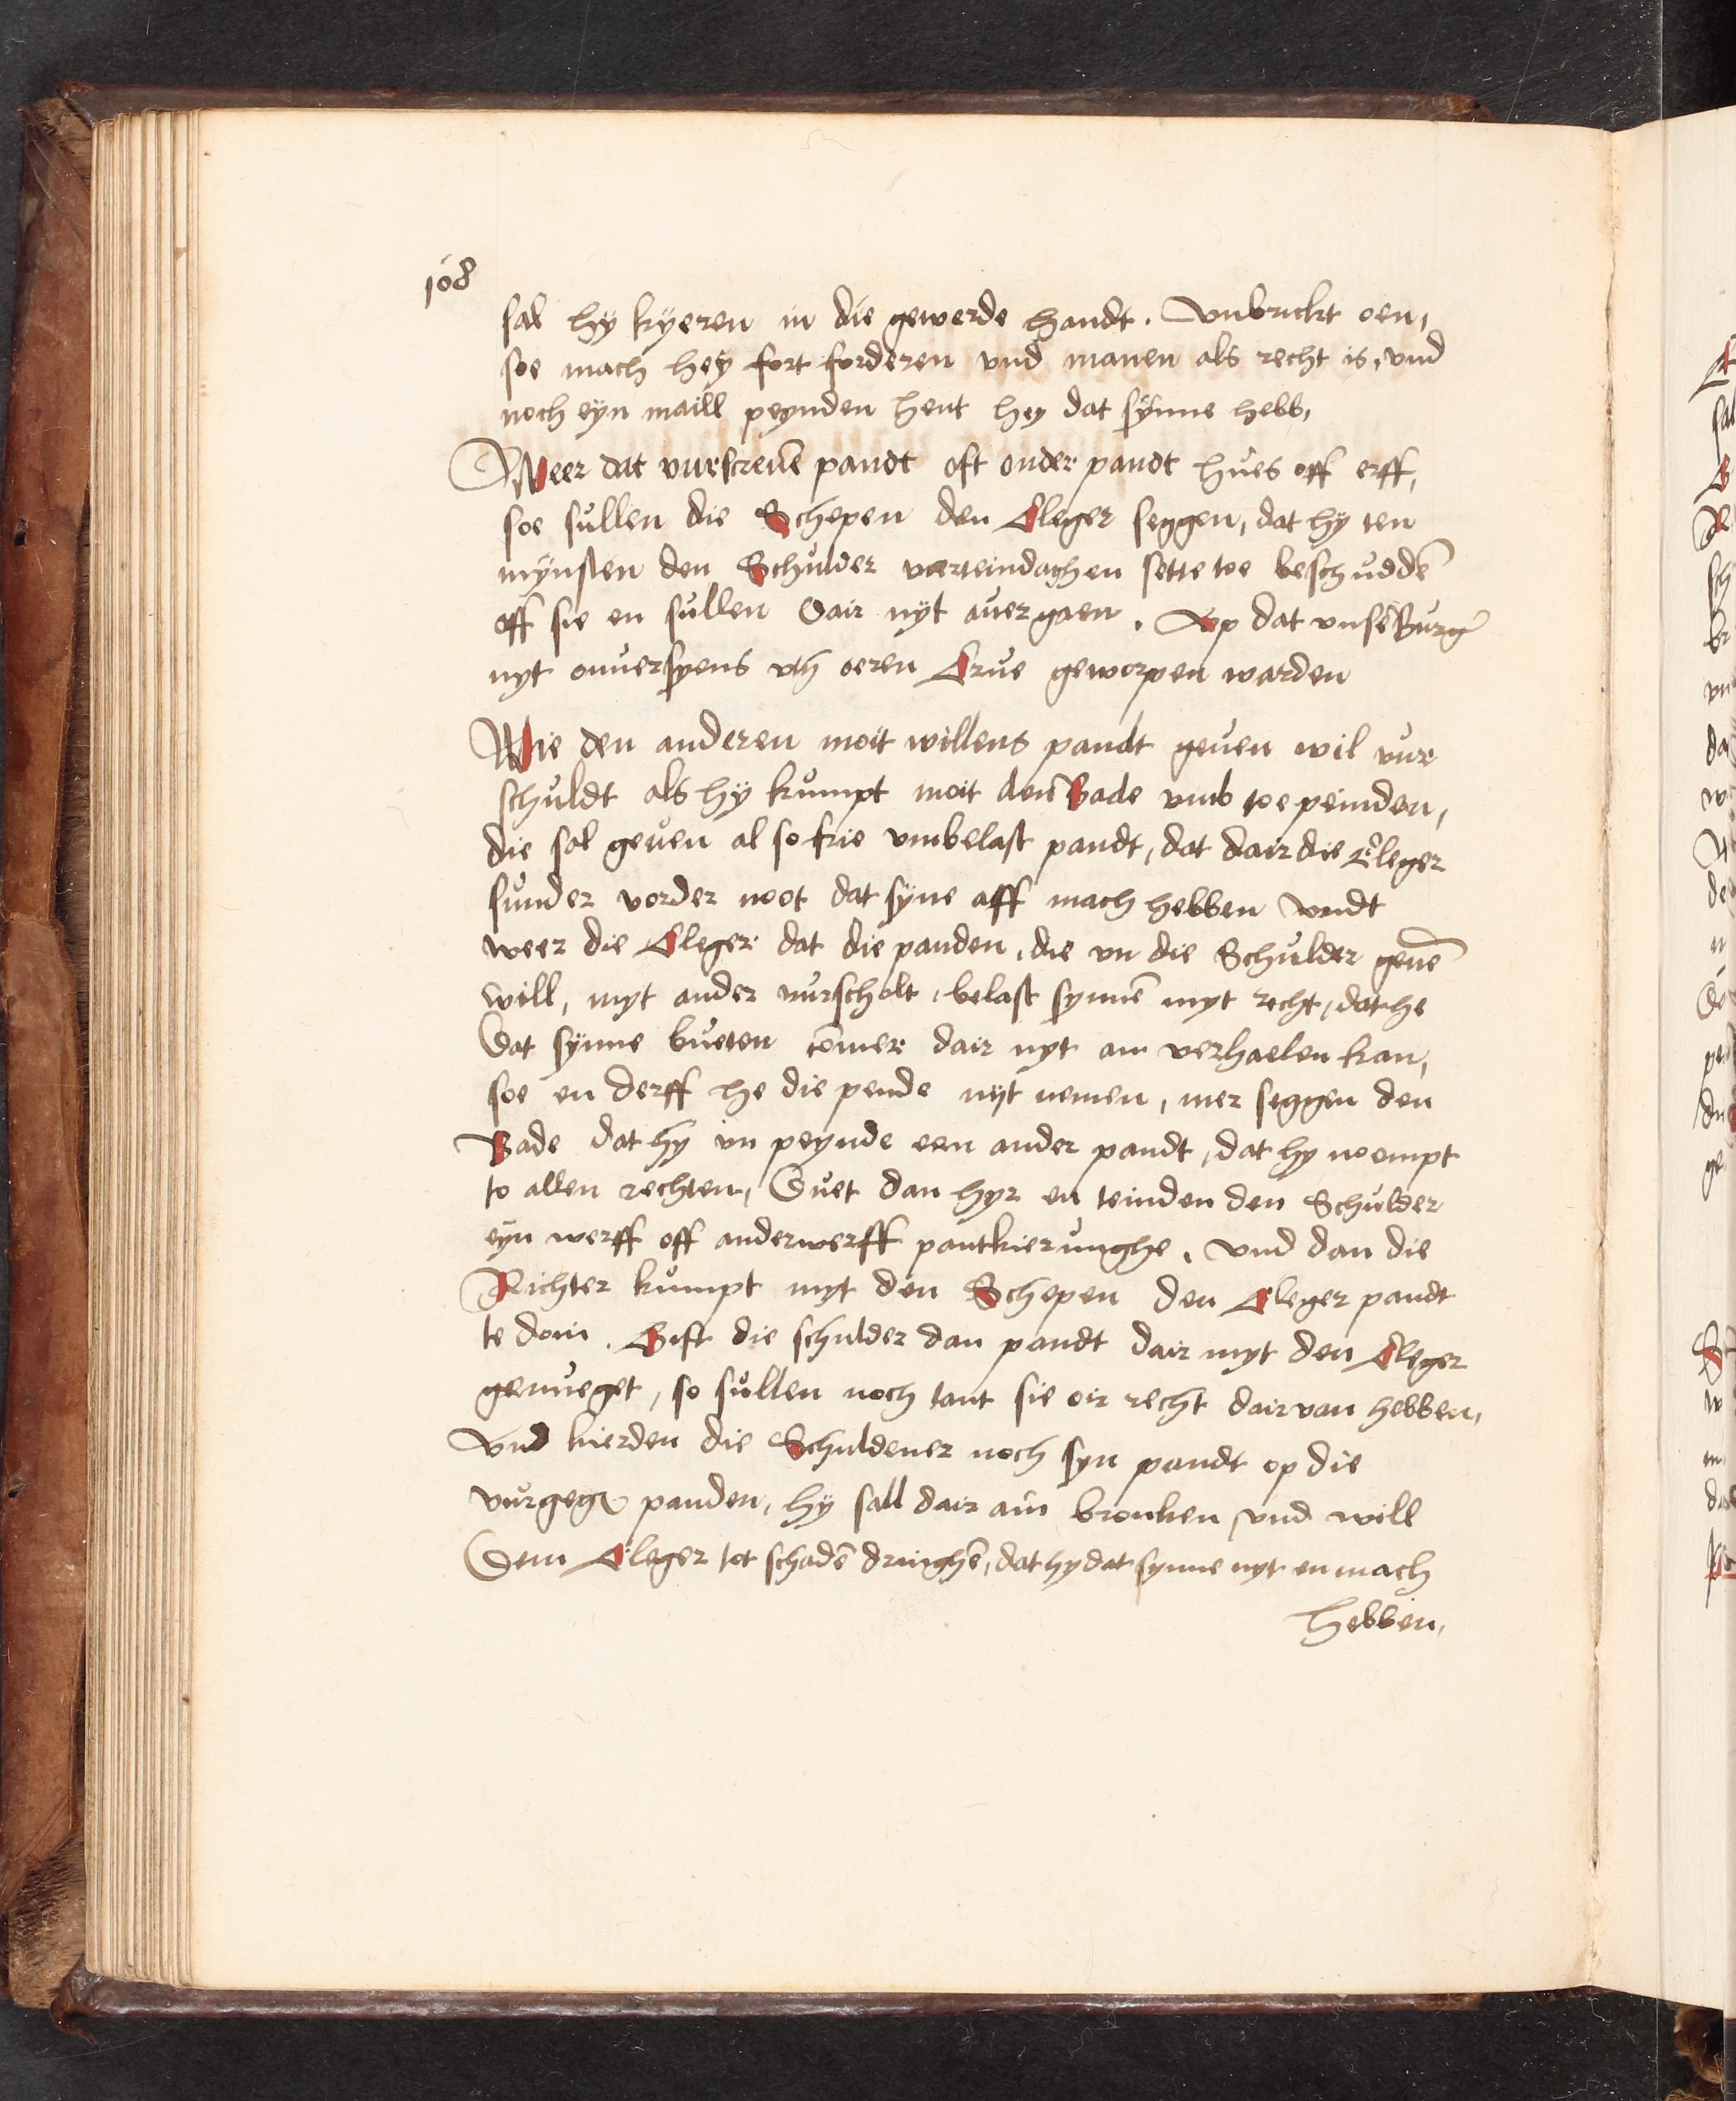 108
sal hÿ kÿeren in die gewerde handt. Vnbrickt oen,
soe mach heÿ fort forderen vnd manen als recht is, vnd
noch eÿn maill peÿnden hent heÿ dat sÿnne hebb,
Weer dat vurscreuē pandt oft onder pandt hues off erff,
soe sullen die Schepen den Cleger seggen, dat hÿ ten
mÿnsten den Schulder veerteindaghen sette toe beschuddē
off sie en sullen dair nÿt auer gaen. Vp dat vnse Burg̕
nyt onuersyens vth oeren Erue geworpen warden
Wie den anderen moit willens pandt geuen wil vur
schuldt als hÿ kumpt moit den Bade vmb toe peinden,
die sal geuen al so frie vmbelast pandt, dat dair die Cleger
sunder vorder noot dat sÿne aff mach hebben Vndt
weer die Cleger dat die panden, die vn die Schulder geuē
will, myt ander vurscholt, belast synnē myt recht, dat he
Dat sÿnne bueten com̄er dair nyt an verhaelen kan,
soe en derff he die pende nÿt nemen, mer seggen den
Bade dat hÿ vn peynde een ander pandt, dat hy noempt
to allen rechten, Duet dan hyr en teinden den Schulder
eÿn werff off anderwerff pantkierunghe, vnd dan die
Richter kumpt myt den Schepen den Cleger pandt
te doin. Gift die schulder dan pandt dair myt den Cleger
genueget, so sullen noch tant sie oir recht dair van hebben,
Vnd kierden die Schuldener noch syn pandt op die
vurgeg panden, hÿ sall dair ain bronken vnd will
Dem Cleger tot schadē dringhē, dat hy dat synne nyt en mach
hebben,